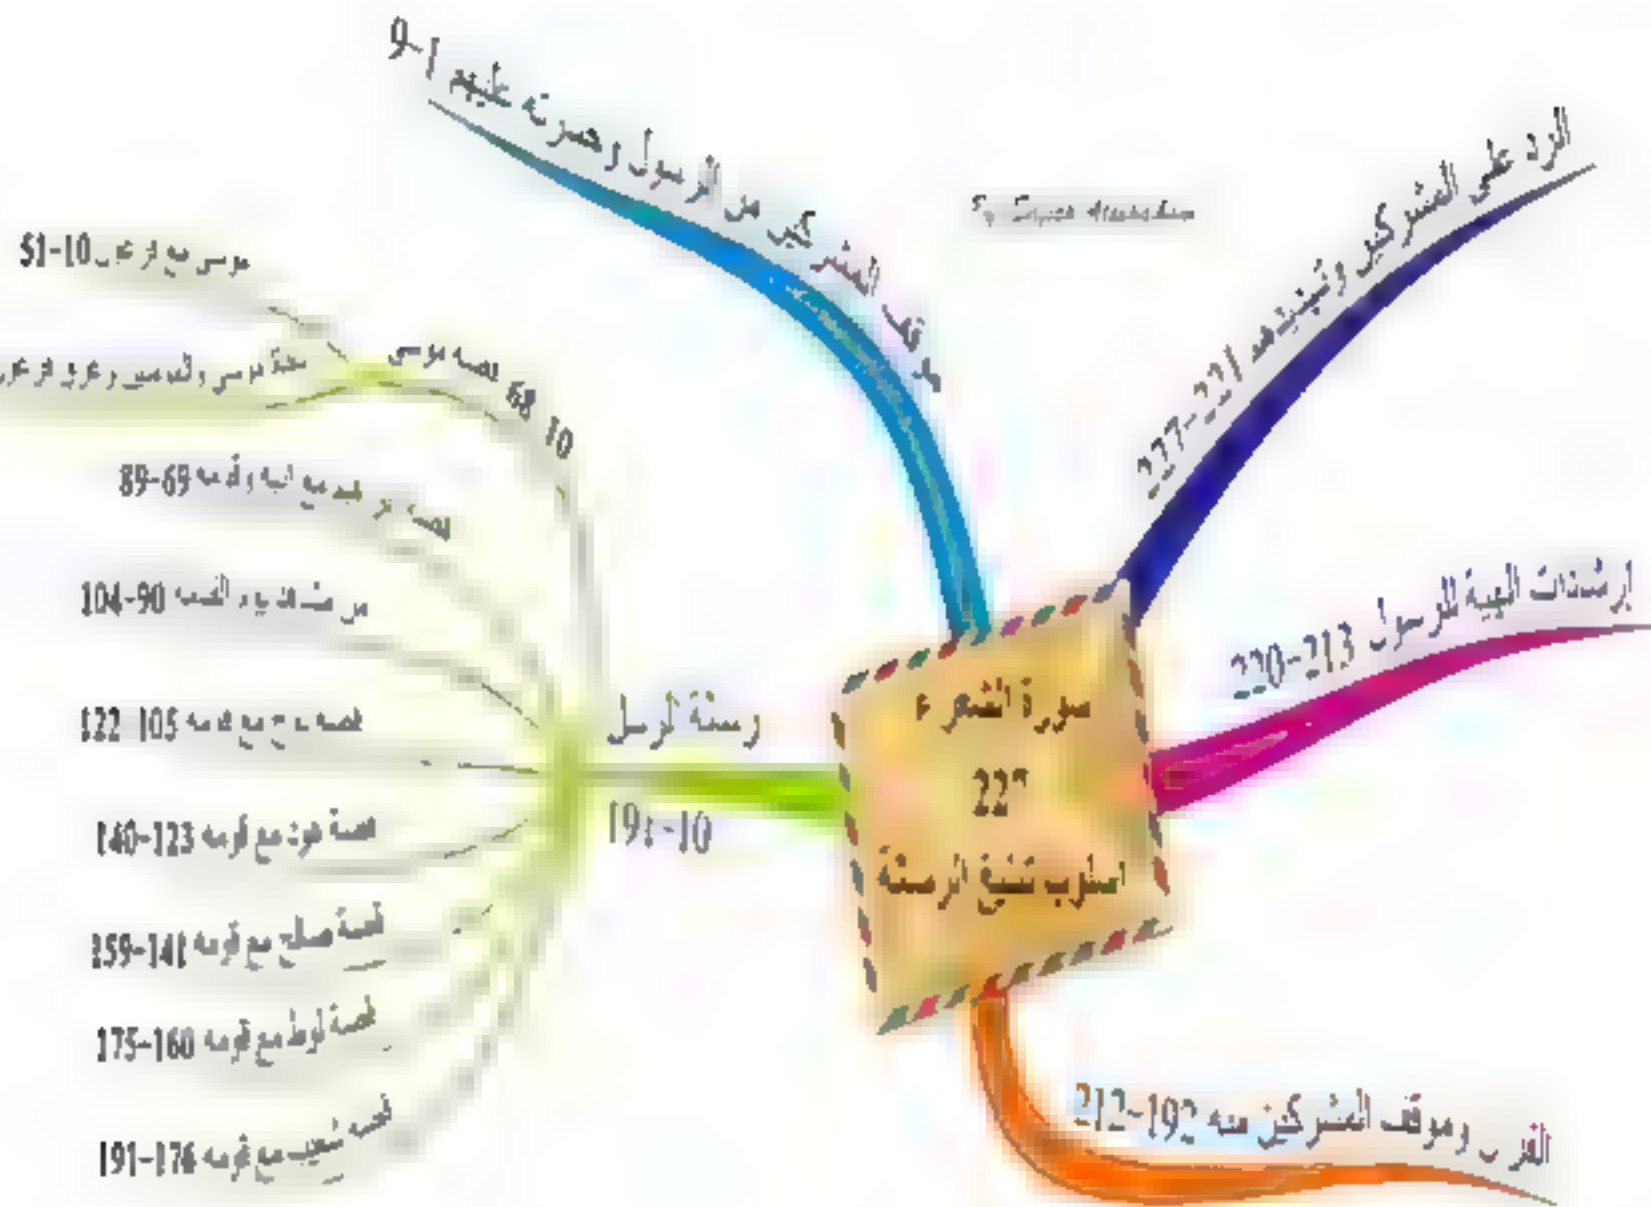 موقف المشركين من الرسول وحسرته عليهم 1-9
الرد على المشركين وتهديدهم 221-227
إرشادات الهية للرسول 213-220
القران وموقف المشركين منه 192-212
سورة الشعراء
227
اسلوب تبليغ الرسالة
رسالة الرسل
10-191
قصة موسى
10 68
موسى مع فرعون 10-51
موسى والمؤمنين وغرق فرعون
قصة ابراهيم مع ابيه وقومه 69-89
من مشاهد يوم القيامة 90-104
قصة نوح مع قومه 105 122
قصة هود مع قومه 123-140
قصة صالح مع قومه 141-159
قصة لوط مع قومه 160-175
قصة شعيب مع قومه 176-191